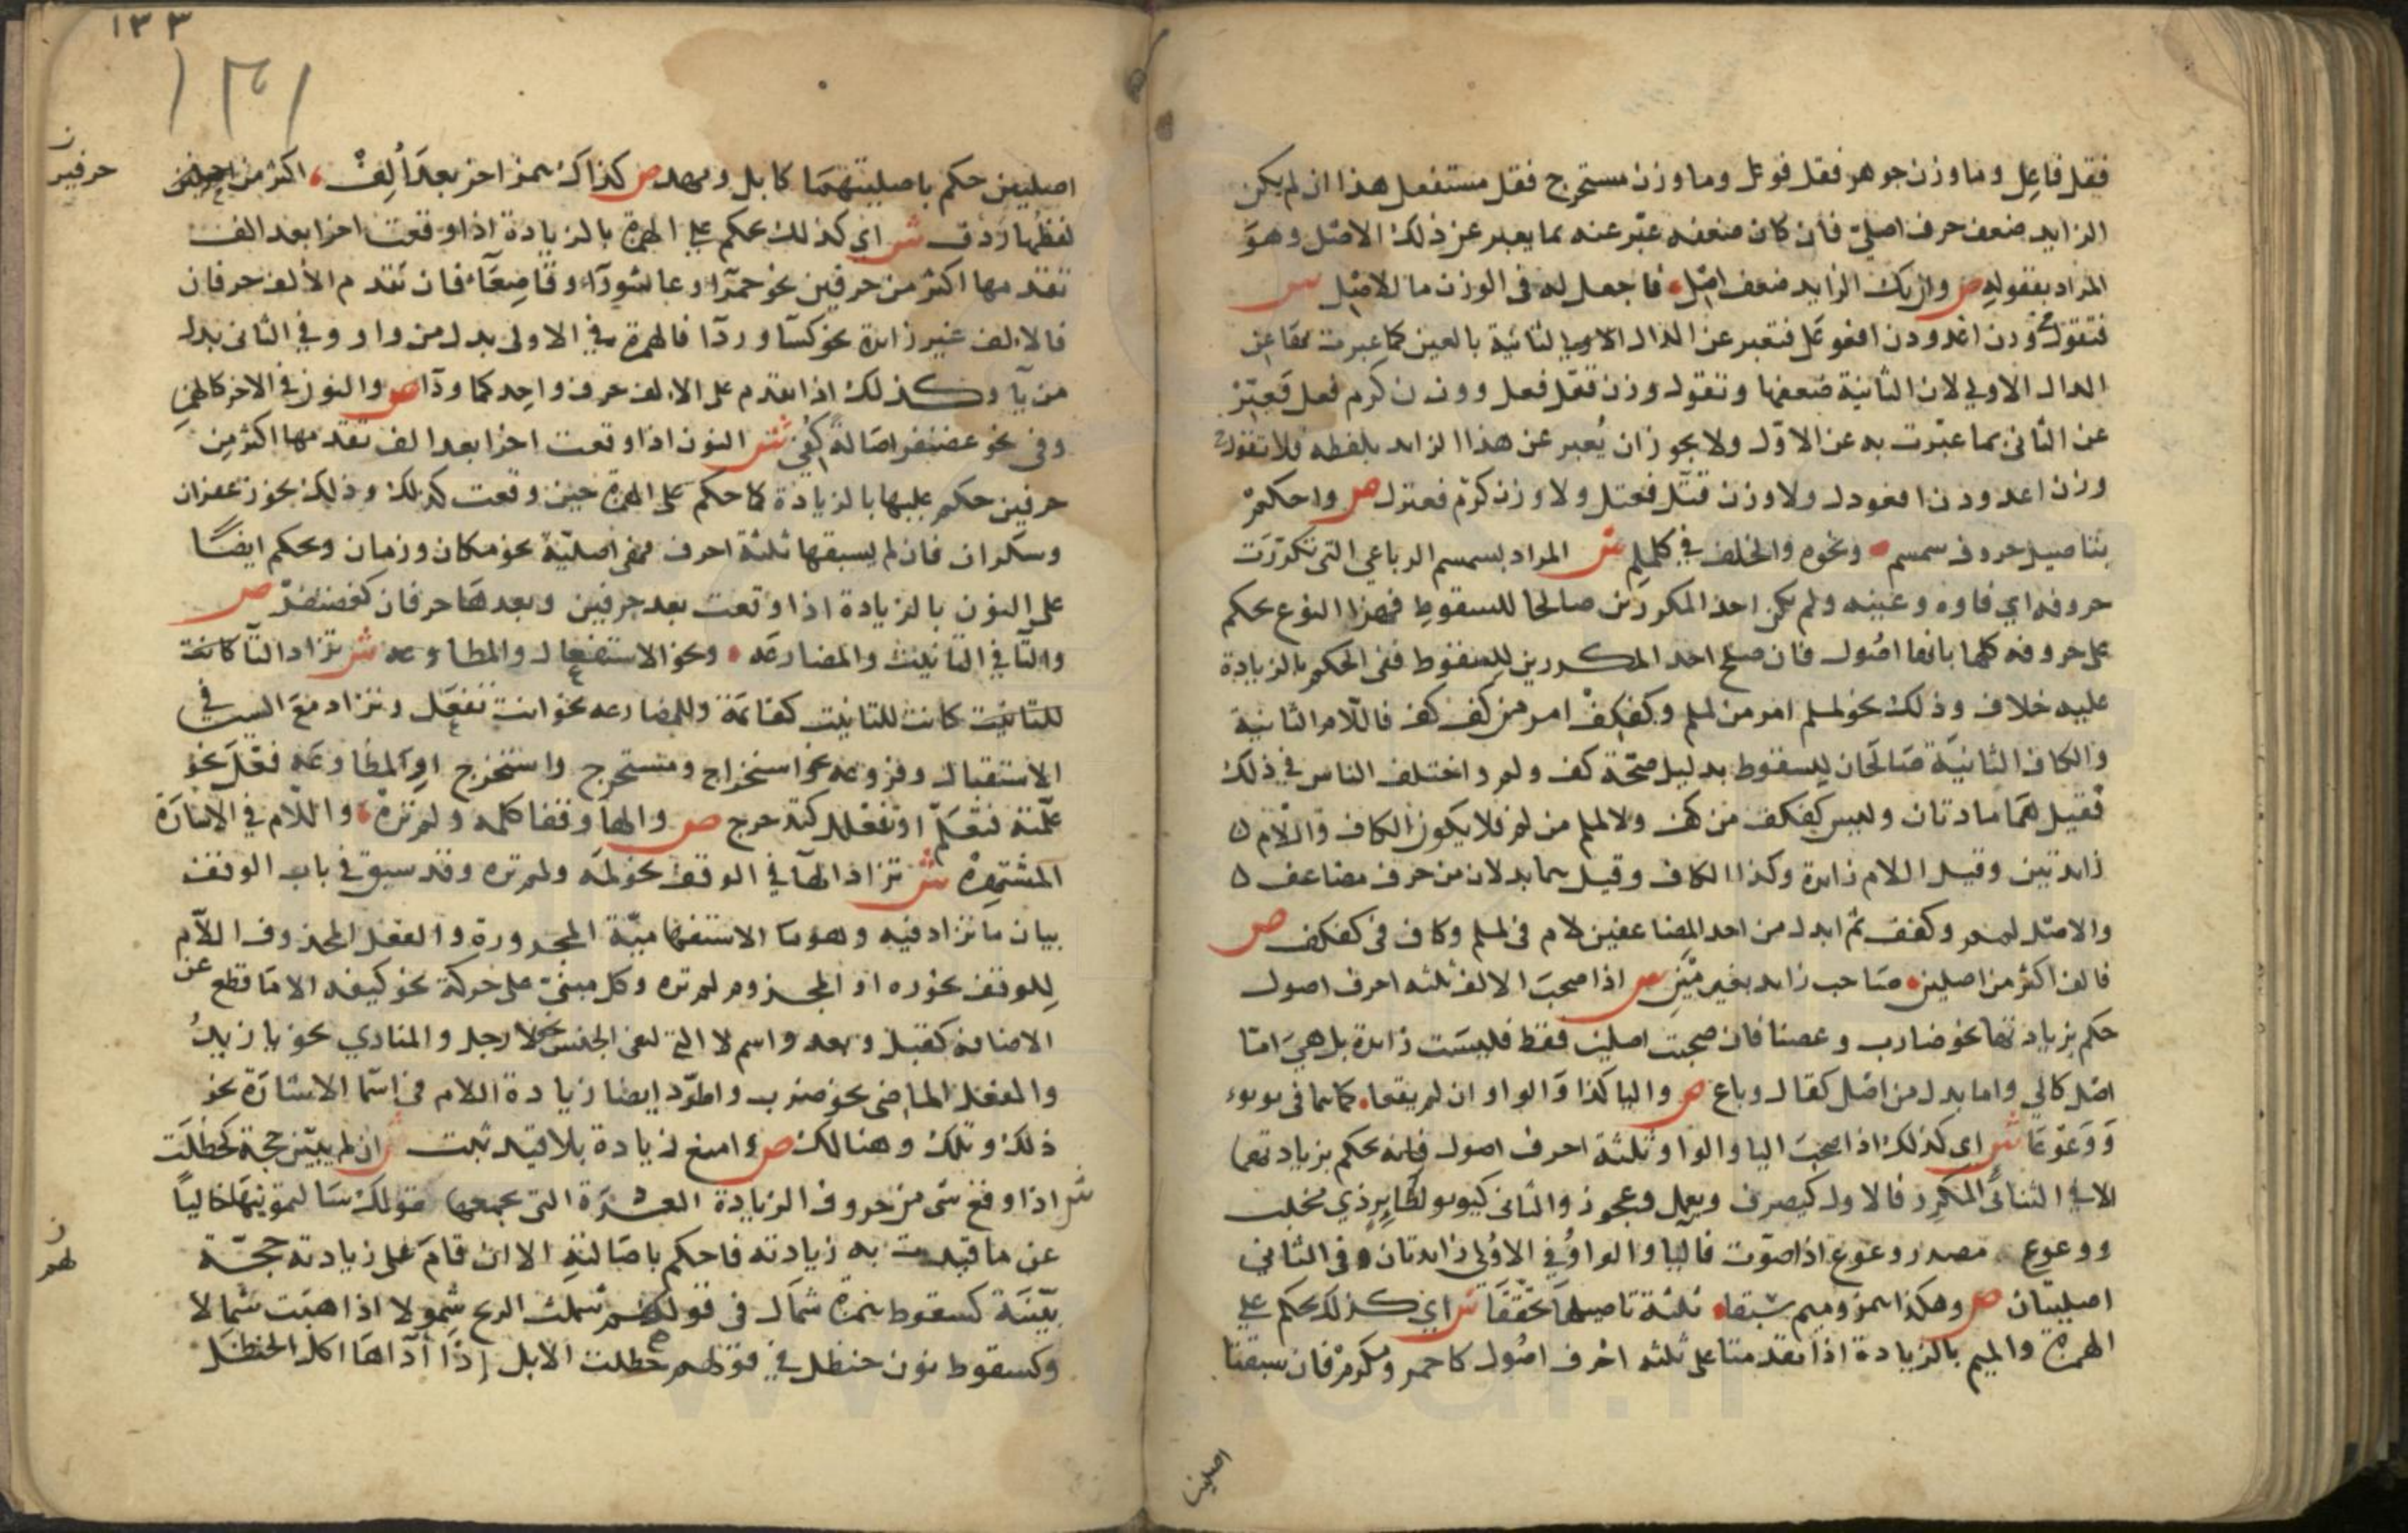 فقل فاعل وما وزن جوهر فقل فوعل وما وزن مستخرج فقل مستفعل هذا ان لم يكن
الزايد ضعف حرف اصلي فان كان ضعفه عبر عنه بما يعبر عن ذلك الاصل وهو
المراد بقوله ص وان يك الزايد ضعف اصل فاجعل له في الوزن ما للاصل ش
فتقول في وزن اغدودن افعوعل فتعبر عن الدال الثانية بالعين كما عبرت بها عن
الدال الاولى لان الثانية ضعفها وتقول وزن قتل فعل ووزن كرم فعل فتعبر
عن الثاني بما عبرت به عن الاول ولا يجوز ان يعبر عن هذا الزايد بلفظه فلا تقول
وزن اغدودن افعودل ولا وزن قتل فعتل ولا وزن كرم فعرل ص واحكم
بتاصيل حروف سمسم ونحوه والخلف في كلملم ش المراد بسمسم الرباعي التي تكررت
حروفه اي فاوه وعينه ولم يكن احد المكررين صالحا للسقوط فهذا النوع يحكم
على حروفه كلها بانها اصول فان صلح احد المكررين للسقوط ففي الحكم بالزيادة
عليه خلاف وذلك نحو لملم امر من لملم وكفكف امر من كفكف فاللام الثانية
والكاف الثانية صالحان للسقوط بدليل صحة كف ولم واختلف الناس في ذلك
فقيل هما مادتان وليس كفكف من كف ولا لملم من لم فلا يكون الكاف واللام
زايدتين وقيل اللام زايدة وكذا الكاف وقيل هما بدلان من حرف مضاعف
والاصل لمم وكفف ثم ابدل من احد المضاعفين لام في لملم وكاف في كفكف ص
فالف اكثر من اصلين صاحب زايد بغير مين ش اذا صحبت الالف ثلثه احرف اصول
حكم بزيادتها نحو ضارب وعصنا فان صحبت اصلين فقط فليست زايدة بل هي اما
اصل كالى واما بدل من اصل كقال وباع ص واليا كذا والواو ان لم يقعا كما هما في يويوء
ووعوعا ش اي كذلك اذا صحبت اليا والواو ثلثة احرف اصول فانه يحكم بزيادتها
الا في الثنائي المكرر فالاول كيصرف ويعمل وعجوز والثاني كيويو لطاير ذي مخلب
ووعوع مصدر وعوع اذا صوت فاليا والواو في الاولى زايدتان وفي الثاني
اصليتان ص وهكذا همز وميم سبقا ثلثة تاصيلها تحققا ش اي كذلك يحكم على
الهمزة والميم بالزيادة اذا تقدمتا على ثلثه احرف اصول كاحمر ومكرم فان سبقتا
اصلين
١٣٣
١٣١
اصليين حكم باصليتهما كابل ومهد ص كذاك همز اخر بعد الف اكثر من حرفين
حرفين
لفظها ردف ش اي كذلك يحكم على الهمزة بالزيادة اذا وقعت اخرا بعد الف
تقدمها اكثر من حرفين نحو حمرآ وعاشورآ وقاصعآء فان تقدم الالف حرفان
فالالف غير زايدة نحو كسآ وردآ فالهمزة في الاولى بدل من واو وفي الثاني بدل
من يآ وكذلك اذا تقدم على الالف حرف واحد كما ودآ ص والنون في الاخر كالهمز
وفي نحو غضنفر اصالة كفي ش النون اذا وقعت اخرا بعد الف تقدمها اكثر من
حرفين حكم عليها بالزيادة كما حكم على الهمزة حين وقعت كذلك وذلك نحو زعفران
وسكران فان لم يسبقها ثلثة احرف فهي اصلية نحو مكان وزمان ويحكم ايضا
على النون بالزيادة اذا وقعت بعد حرفين وبعدها حرفان كغضنفر ص
والتآ في التانيث والمضارعه ونحو الاستفعال والمطاوعه ش تزاد التآ كانت
للتانيث كانت للتانيث كقائمة وللمضارعه نحو انت تفعل وتزاد مع السين في
الاستقبال وفروعه نحو استخراج ومستخرج واستخرج او المطاوعة فعل نحو
علمته فتعلم او تفعلل كتدحرج ص والها وقفا كلمه ولم تره واللام في الاشارة
المشتهره ش تزاد الهآ في الوقف نحو لمه ولم تره وقد سبق في باب الوقف
بيان ما تزاد فيه وهو ما الاستفهامية المجرورة والفعل المحذوف اللام
للوقف نحو ره او المجزوم لم تره وكل مبني على حركة نحو كيفه الا ما قطع عن
الاضافه كقبل وبعد واسم لا التي لنفي الجنس نحو لا رجل والمنادي نحو يا زيد
والفعل الماضي نحو ضرب واطرد ايضا زيادة اللام في اسما الاشارة نحو
ذلك وتلك وهنالك ص وامنع زيادة بلا قيد ثبت ان لم يبين حجة كحظلت
ش اذا وقع شي من حروف الزيادة العشرة التي يجمعها قولك سالتمونيها خاليا
عن ما قيدت به زيادته فاحكم باصالته الا ان قام على زيادته حجة
لهم
بينة كسقوط همزة شمال في قولهم شملت الريح شمولا اذا هبت شمالا
وكسقوط نون حنظل في قولهم حظلت الابل اذا آذاها اكل الحنظل